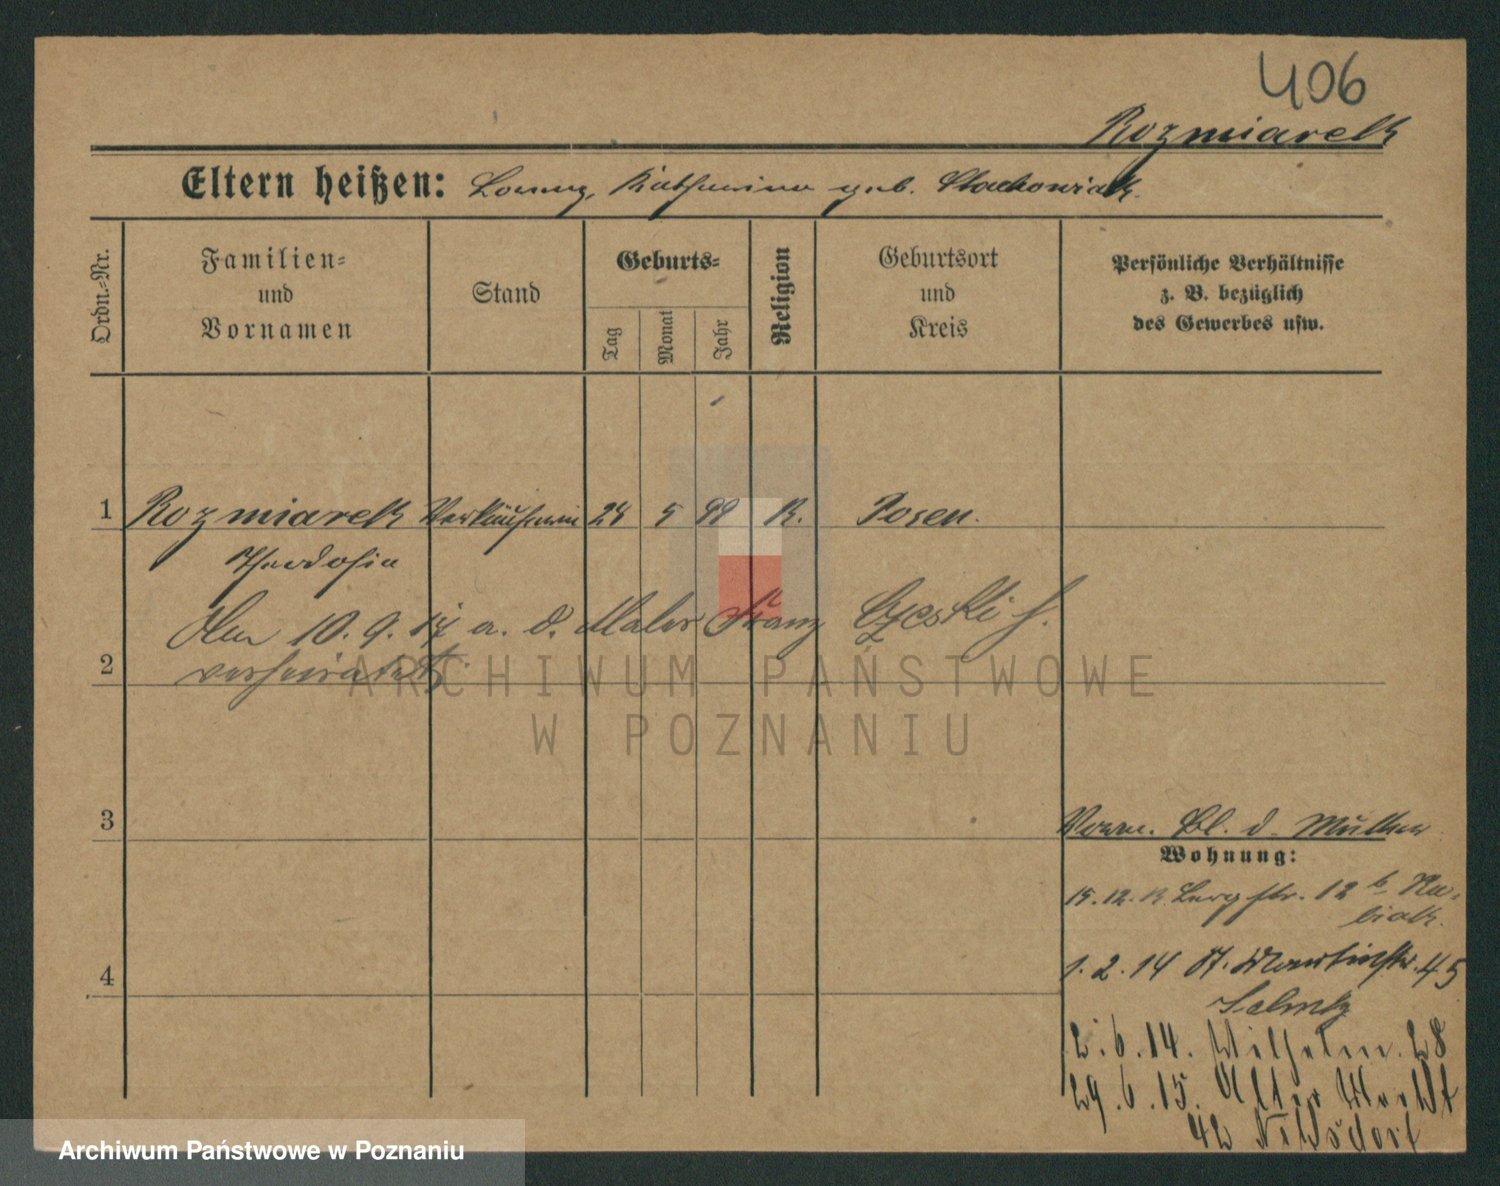 406
Rozmiarek
Eltern heißen: Lorenz, Katharina geb. Stachowiak.
Ordn.-Nr.
Familien-
und
Vornamen
Stand
Geburts-
Tag
Monat
Jahr
Religion
Geburtsort
und
Kreis
Persönliche Verhältnisse
z. B. bezüglich
des Gewerbes usw.
1 Rozmiarek Verkäuferin 24 5 98 K. Posen.
Theodosia
Am 10. 9. 17 a. d. Maler Franz
2 verheiratet.
ARCHIWUM PAŃSTWOWE
W POZNANIU
3
Bl. d. Mutter
Wohnung:
15. 12. Bergstr. 12 b
4
1. 2. 14 St. Martinstr. 45
2. 6. 14. Wilhelm. 28
29. 6. 15. Alter Markt
42
Archiwum Państwowe w Poznaniu